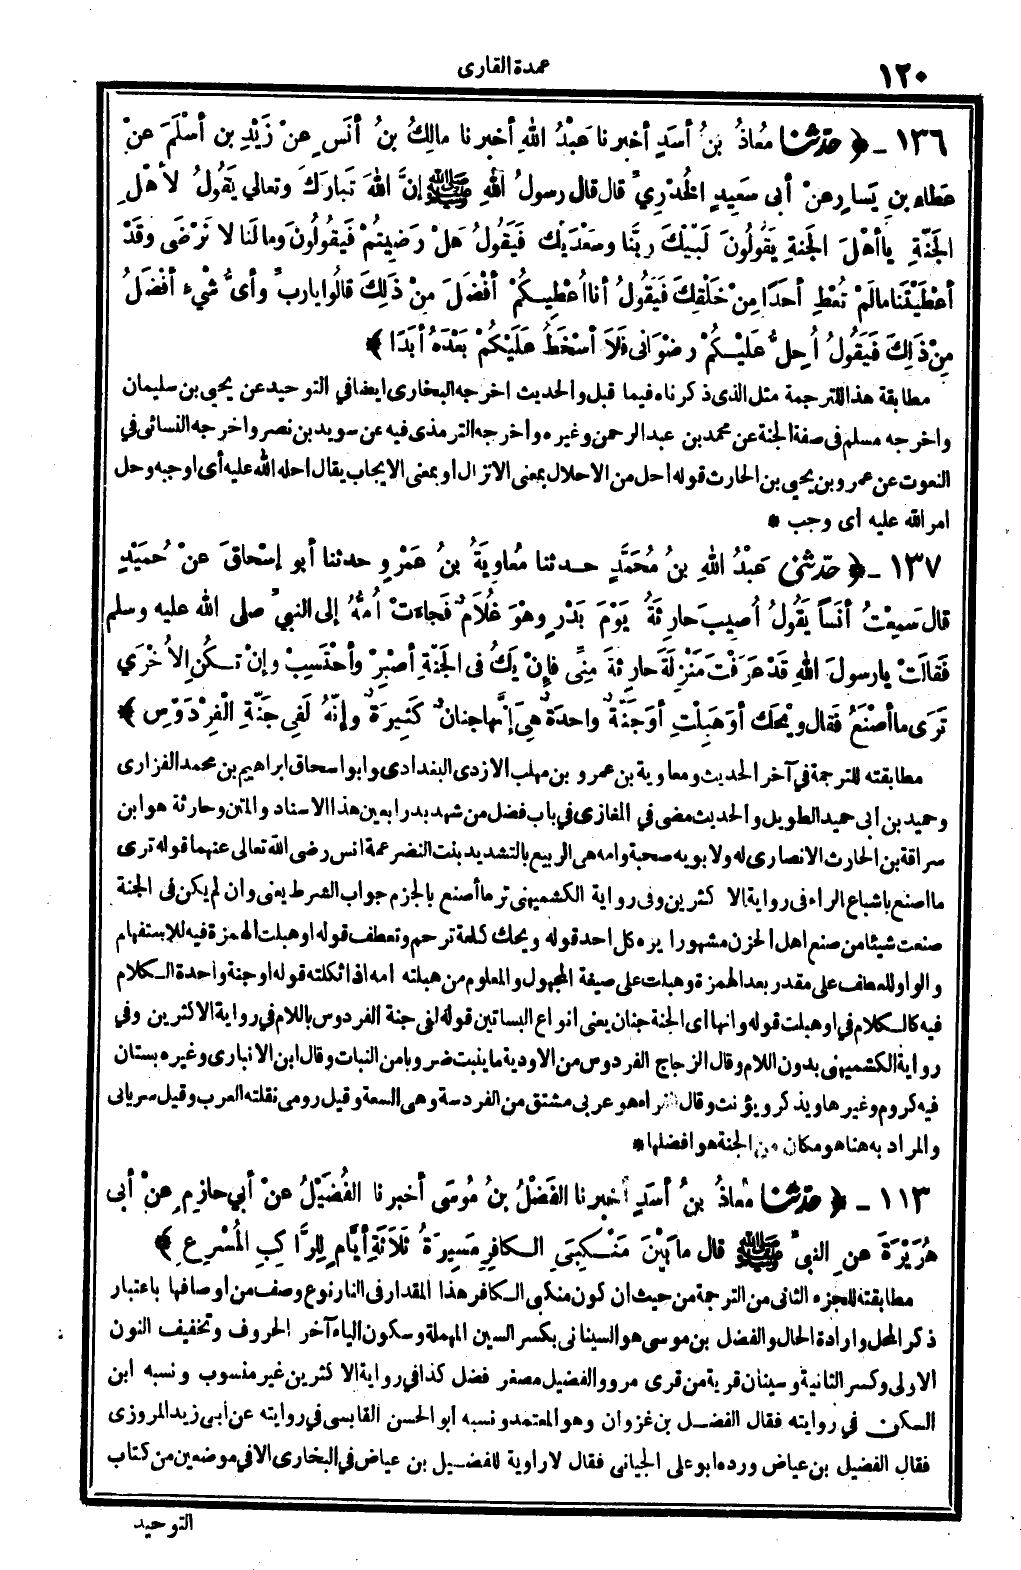 ١٢٠
عمدة القارى
١٣٦ - ﴿ حَدَّثَنَا مُعَاذُ بنُ أَسَدٍ أخبرنا عَبْدُ اللهِ أخبرنا مالِكُ بنُ أنَسٍ عنْ زَيْدِ بنِ أسْلَمَ عنْ
عَطاءِ بنِ يَسارٍ عنْ أبى سَعِيدٍ الخُدْرِيِّ قال قال رسولُ اللهِ ﷺ إنَّ اللهَ تَبارَكَ وتعالي يَقُولُ لأهْلِ
الجَنَّةِ ياأهْلَ الجَنةِ يَقُولُونَ لَبَّيْكَ ربَّنا وسَعْدَيْك فَيَقُولُ هَلْ رَضِيتُمْ فَيقُولُونَ ومالَنا لا نَرْضَى وقَدْ
أعْطَيْتَنا مالَمْ تُعْطِ أحَدًا مِنْ خَلْقِكَ فَيَقُولُ أناأُعْطِيكُمْ أفْضَلَ مِنْ ذَلِكَ قالُوا يارب وأىُّ شْيءٍ أفْضَلُ
مِنْ ذَلِكَ فَيَقُولُ أُحِلُّ عَلَيْكُمْ رِضْوَانى فَلَا أسْخَطُ عَلَيْكُمْ بَعْدَهُ أبَدًا ﴾
مطابقة هذا للترجمة مثل الذى ذكرناه فيما قبل والحديث اخرجه البخارى ايضافي التوحيد عن يحيى بن سليمان
واخرجه مسلم فى صفة الجنة عن محمد بن عبد الرحمن وغيره واخرجه الترمذى فيه عن سويد بن نصر واخرجه النسائى في
النعوت عن عمرو بن يحيى بن الحارث قوله احل من الاحلال بمعنى الانزال او بمعنى الايجاب يقال احله الله عليه أى اوجبه وحل
امر الله عليه اى وجب *
١٣٧ - ﴿ حَدَّثَنى عَبْدُ اللهِ بنُ مُحَمَّدٍ حـدثنا مُعاوِيَةُ بنُ عَمْرٍو حدثنا أبو إسْحاقَ عنْ حُمَيْدٍ
قال سَمِعْتُ أنَسًا يَقُولُ أُصِيبَ حارِثَةُ يَوْمَ بَدْرٍ وهْوَ غُلَامٌ فَجاءَتْ أُمُّهُ إلى النبيِّ صلى الله عليه وسلم
فَقالَتْ يارسولَ اللهِ قَدْ عَرَفْتَ مَنْزِلَةَ حارِثَةَ مِنِّى فإنْ يَكُ فى الجَنَّةِ أصْبِرْ وأحْتَسِبْ وإنْ تَـكُنِ الأُخْرَي
تَرَى ما أصْنَعُ فَقال ويْحَكِ أوَهَبِلْتِ أوَجَنَّةٌ واحدَةٌ هِىَ إنَّها جِنانٌ كَثِيرَةٌ وإنَّهُ لَفِى جَنَّةِ الْفِرْدَوْسِ ﴾
مطابقته للترجمة في آخر الحديث ومعاوية بن عمرو بن مهلب الازدى البغدادى وابو اسحاق ابراهيم بن محمد الفزارى
وحميد بن ابى حميد الطويل والحديث مضى في المغازى في باب فضل من شهد بدرا بعين هذا الاسناد والمتن وحارثة هو ابن
سراقة بن الحارث الانصارى له ولابويه صحبة وامه هى الربيع بالتشديد بنت النضر عمة انس رضى الله تعالى عنهما قوله ترى
ما اصنع باشباع الراء فى رواية الاكثرين وفى رواية الكشميهنى تر ما أصنع بالجزم جواب الشرط يعنى وان لم يكن فى الجنة
صنعت شيئا من صنع اهل الحزن مشهورا يره كل احد قوله ويحك كلمة ترحم وتعطف قوله اوهبلت الهمزة فيه للاستفهام
والواو للعطف على مقدر بعد الهمزة وهبلت على صيغة المجهول والمعلوم من هبلته امه اذا ثكلته قوله اوجنة واحدة الكلام
فيه كالكلام في اوهبلت قوله وانها اى الجنة جنان يعنى انواع البساتين قوله لفى جنة الفردوس باللام في رواية الاكثرين وفي
رواية الكشميهنى بدون اللام وقال الزجاج الفردوس من الاودية ما ينبت ضروبا من النبات وقال ابن الانبارى وغيره بستان
فيه كروم وغيرها ويذكر ويؤنث وقال الفراء هو عربى مشتق من الفردسة وهى السعة وقيل رومى نقلته العرب وقيل سريانى
والمراد به هنا هو مكان من الجنة هو افضلها *
١١٣ - ﴿ حَدَّثَنَا مُعاذُ بنُ أسَدٍ أخبرنا الفَضْلُ بنُ مُوسَى أخبرنا الفُضَيْلُ عنْ أبي حازِمٍ عنْ أبى
هُرَيْرَةَ عنِ النبىِّ ﷺ قال ما بَيْنَ مَنْـكِبَىِ الـكافِرِ مَسِيرَةُ ثَلَاثَةِ أيَّامٍ لِلرَّاكِبِ المُسْرِعِ ﴾
مطابقته للجزء الثانى من الترجمة من حيث ان كون منكبى الـكافر هذا المقدار فى النار نوع وصف من اوصافها باعتبار
ذكر المحل وارادة الحال والفضل بن موسى هو السينانى بكسر السين المهملة وسكون الياء آخر الحروف وتخفيف النون
الاولى وكسر الثانية وسينان قرية من قرى مرو والفضيل مصغر فضل كذا في رواية الاكثرين غير منسوب ونسبه ابن
السكن في روايته فقال الفضـيل بن غزوان وهو المعتمد ونسبه أبو الحسن القابسى في روايته عن أبى زيد المروزى
فقال الفضيل بن عياض ورده ابو على الجيانى فقال لا راوية للفضـيل بن عياض في البخارى الا في موضعين من كتاب
التوحيد